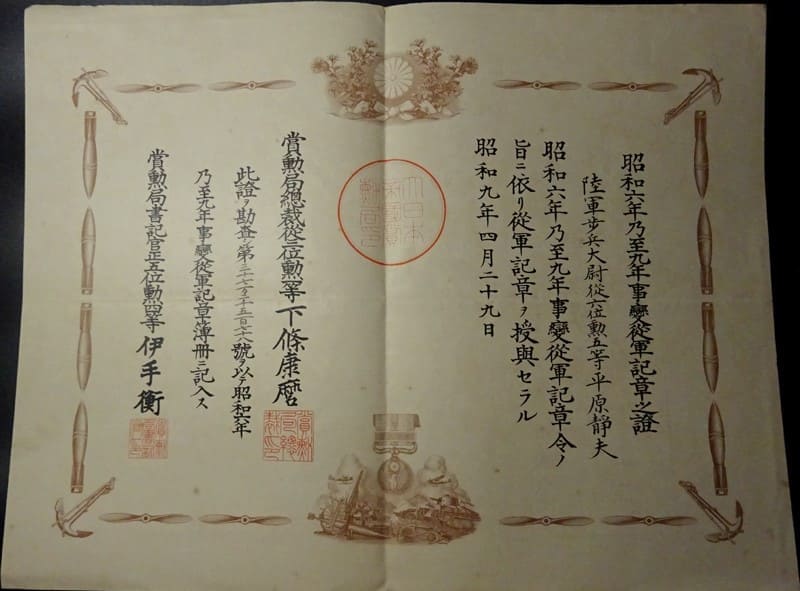 昭和六年乃至九年事變從軍記章之證
陸軍步兵大尉從六位勲五等平原靜夫
昭和六年乃至九年事變從軍記章令ノ
旨ニ依リ從軍記章ヲ授與セラル
昭和九年四月二十九日
大日本
帝國賞
勲局印
賞勲局總裁從三位勲一等下條康麿
此證ヲ勘査シ第二十七万千五百七十八號ヲ以テ昭和六年
乃至九年事變從軍記章簿册ニ記入ス
賞勲局書記官正五位勲四等伊手衡